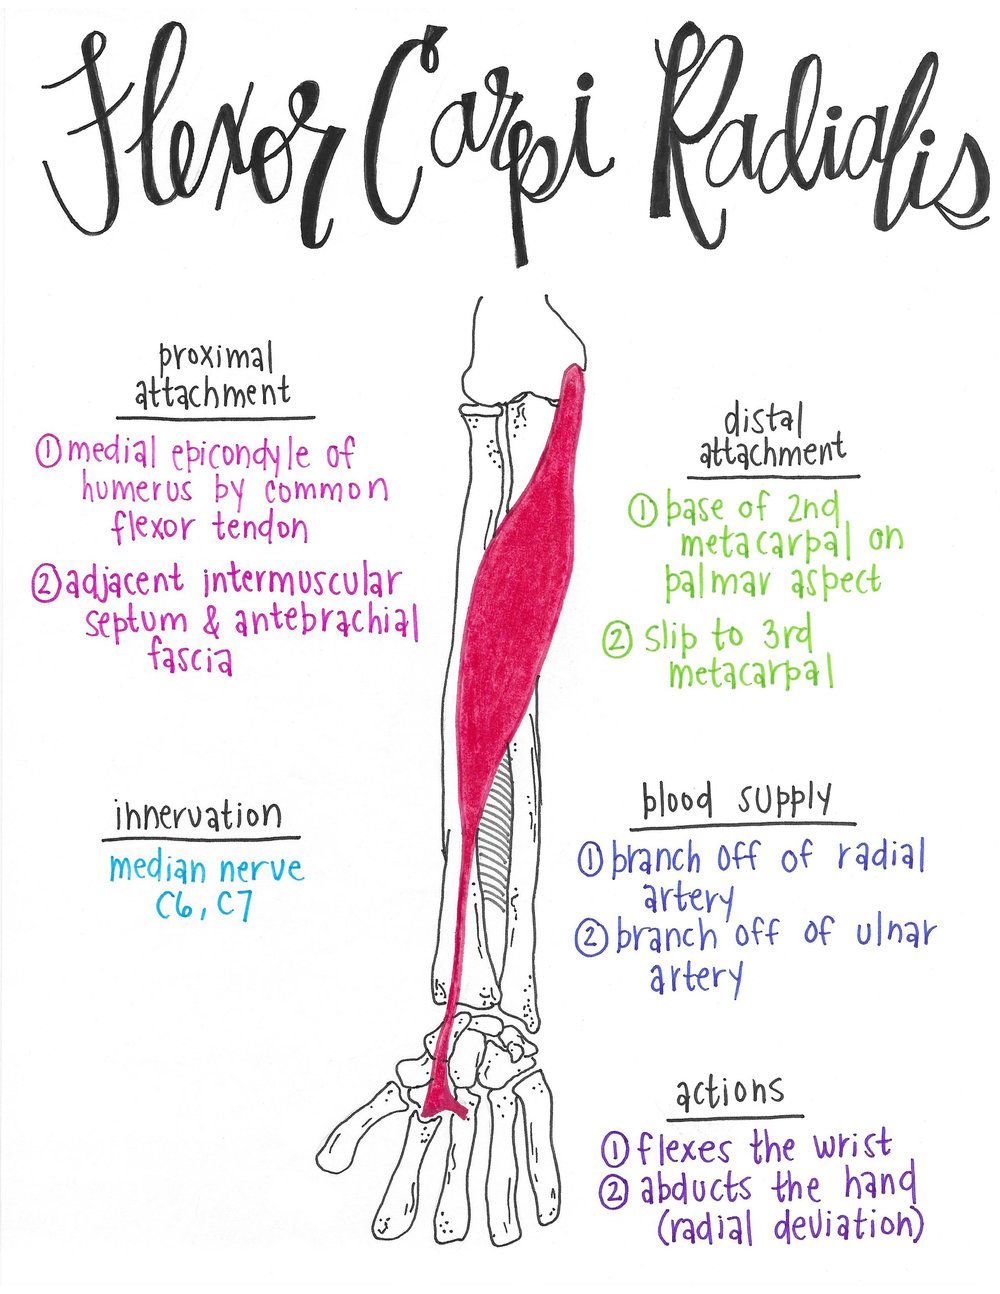 Flexor Carpi Radialis
proximal
attachment
① medial epicondyle of
humerus by common
flexor tendon
② adjacent intermuscular
septum & antebrachial
fascia
innervation
median nerve
C6, C7
distal
attachment
① base of 2nd
metacarpal on
palmar aspect
② slip to 3rd
metacarpal
blood supply
① branch off of radial
artery
② branch off of ulnar
artery
actions
① flexes the wrist
② abducts the hand
(radial deviation)